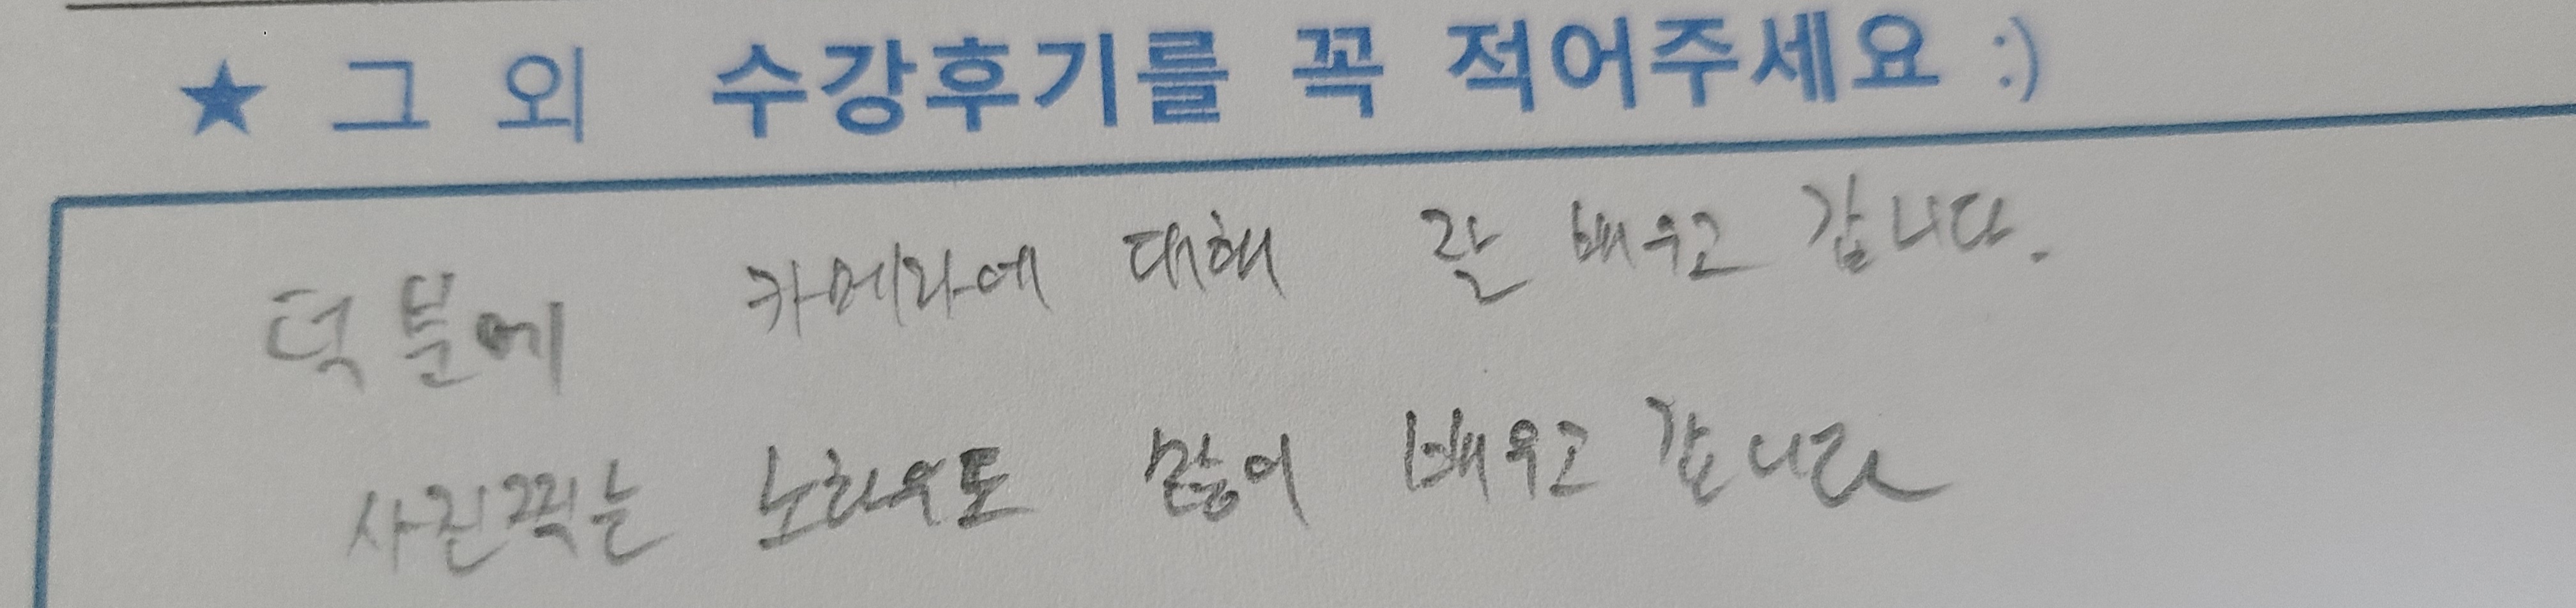 ★ 그 외 수강후기를 꼭 적어주세요 :)
덕분에 카메라에 대해 잘 배우고 갑니다.
사진찍는 노하우도 많이 배우고 갑니다